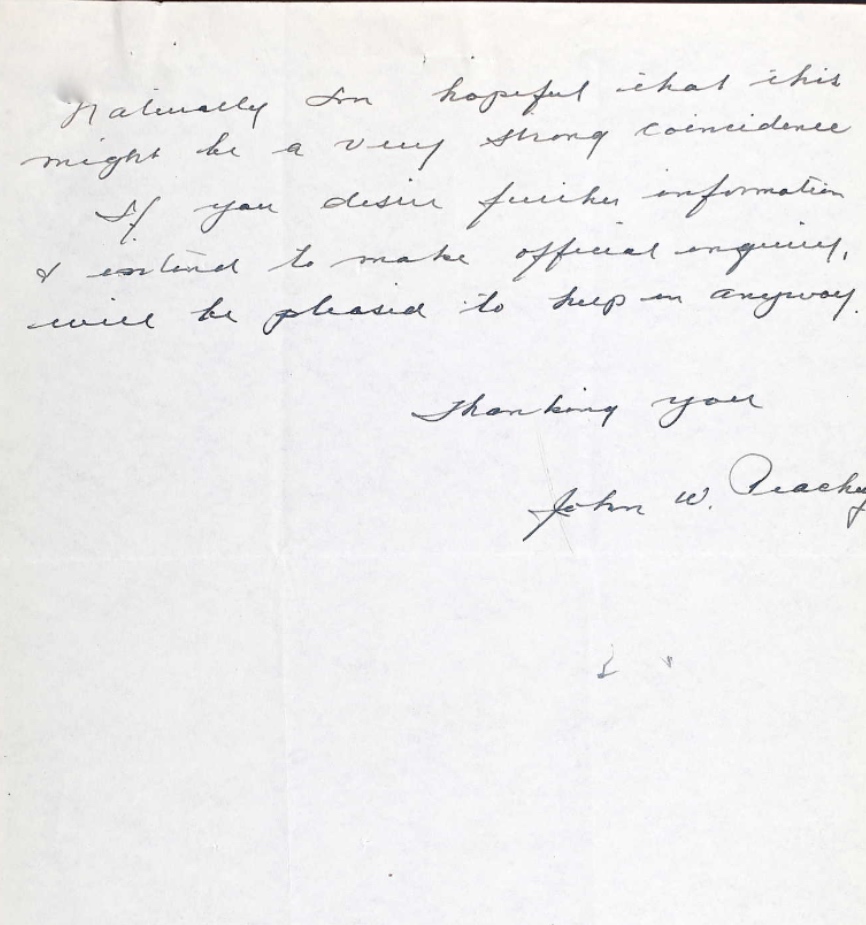 Naturally Im hopeful that this
might be a very strong coincidence
If you desire further information
& intend to make official enquiry,
will be pleased to help in anyway.
Thanking you
John W. Peachey